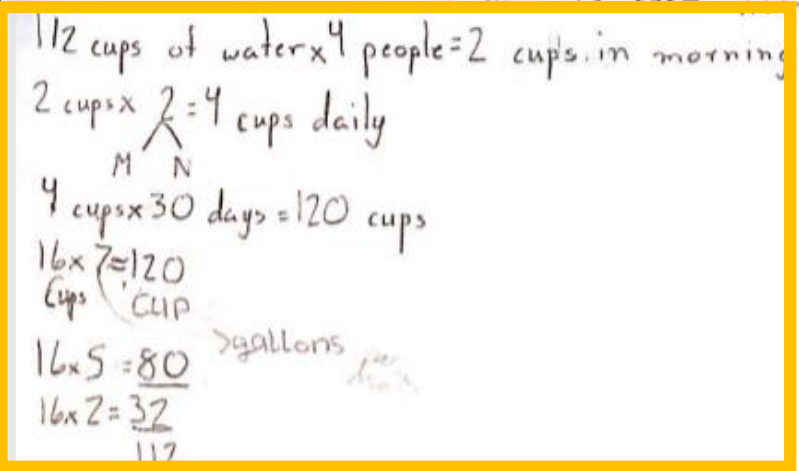 1/2 cups of water x 4 people = 2 cups in morning
2 cups x 2 = 4 cups daily
M N
4 cups x 30 days = 120 cups
16 x 7 ≈ 120
Cups CUP
>gallons
16 x 5 = 80
16 x 2 = 32
112